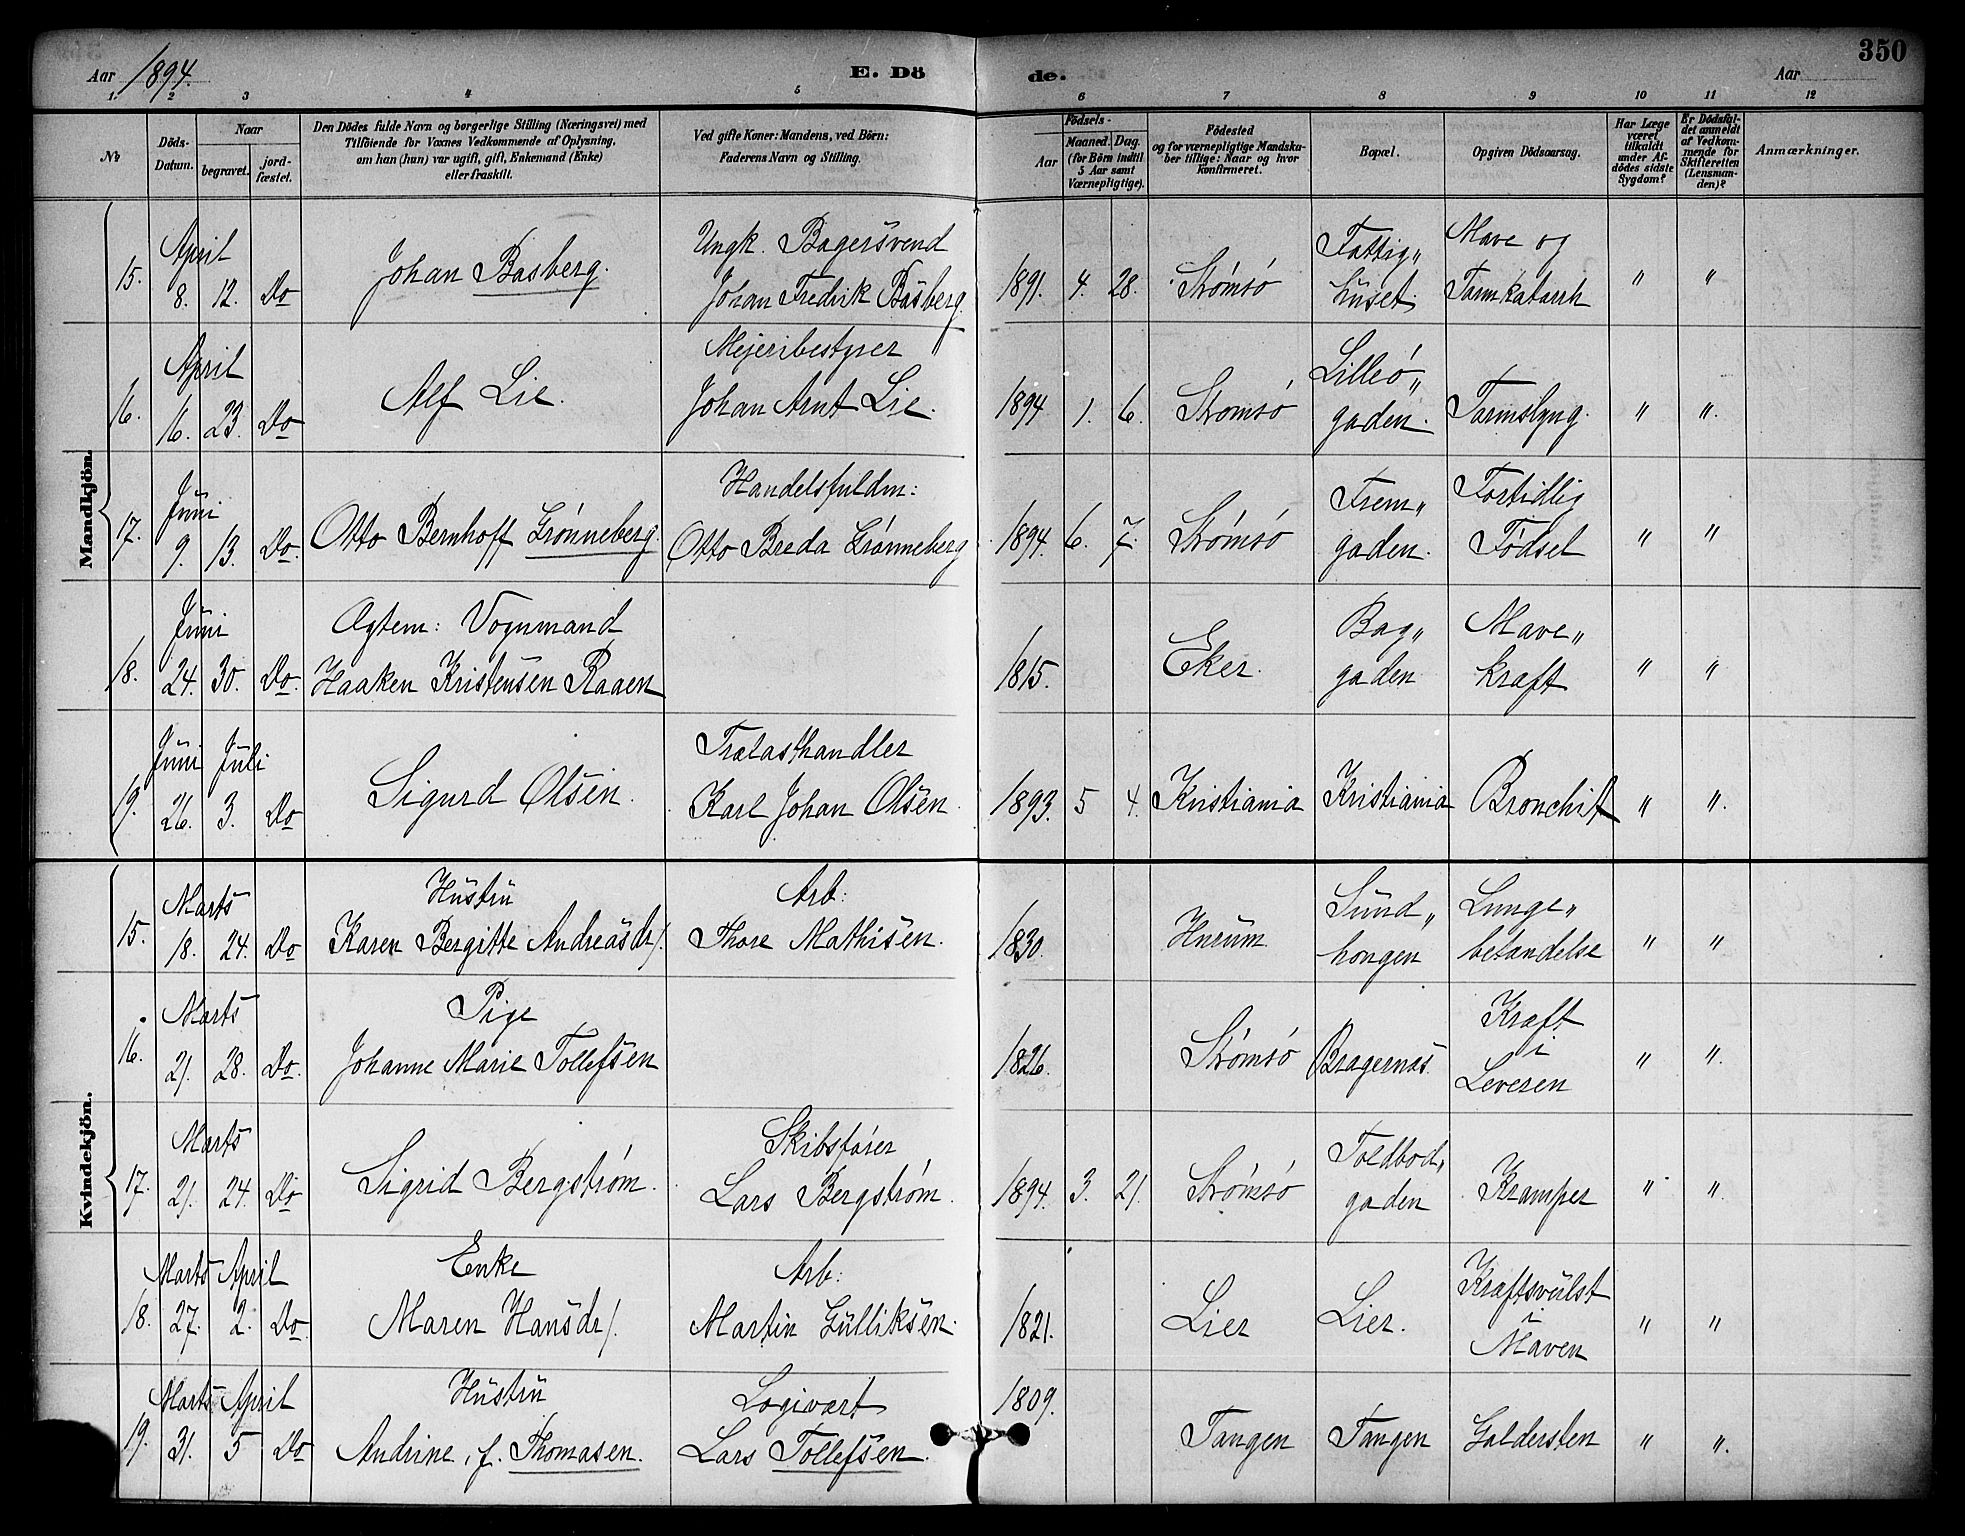 Aar 1894.
E. Dö
de.
Aar
350
1. 2 3 4 5 6 7 8 9 10 11 12
No
Döds-Datum.
Naar
begravet.
jord-fæstet.
Den Dödes fulde Navn og borgerlige Stilling (Næringsvei) med
Tilföiende for Voxnes Vedkommende af Oplysning,
om han (hun) var ugift, gift, Enkemand (Enke)
eller fraskilt.
Ved gifte Koner: Mandens, ved Börn:
Faderens Navn og Stilling.
Födsels-
Aar
Maaned. Dag.
(for Börn indtil
5 Aar samt
Værnepligtige).
Födested
og for værnepligtige Mandska-
ber tillige: Naar og hvor
konfirmeret.
Bopæl.
Opgiven Dödsaarsag.
Har Læge
været
tilkaldt
under Af-
dödes sidste
Sygdom?
Er Dödsfal-
det anmeldt
af Vedkom-
mende for
Skifteretten
(Lensman-
den)?
Anmærkninger.
Mandkjön.
April Ungk. Bagersvend Fattig„ Mave og
15. 8. 12. Do Johan Basberg. Johan Fredrik Basberg. 1891. 4. 28. Strømsø huset. Tarmkatarrh " "
April Mejeribestyrer Lilleö„
16. 16. 23. Do Alf Lie. Johan Arnt Lie. 1894 1. 6. Strømsø gaden. Tarmslyng. " ".
Juni Handelsfuldm: Frem„ Fortidlig
17. 9. 13. Do. Otto Bernhoff Grønneberg. Otto Breda Grønneberg 1894. 6. 7. Strømsø gaden. Födsel " "
Juni Ægtem: Vognmand Bag„ Mave„
18. 24. 30. Do. Haaken Kristensen Raaen 1815. Eker. gaden kræft " "
Juni Juli Trælasthandler
19. 26. 3. Do Sigurd Olsen. Karl Johan Olsen. 1893. 5 4. Kristiania Kristiania Bronchit " ".
Kvindekjön.
Marts Hustru Arb: Sund„ Lunge„
15. 18. 24. Do Karen Bergitte Andreasdr/. Thore Mathisen. 1830. Hurum. hougen betændelse " "
Marts Pige Kræft
16. 21. 28. Do. Johanne Marie Tollefsen 1826. Strømsø Bragernæs. i " ".
Leveren
Marts Skibsfører Toldbod„
17. 21. 24. Do Sigrid Bergstrøm. Lars Bergstrøm. 1894. 3. 21. Strømsø gaden Kramper " ".
Marts April Enke Arb: Kræftsvulst
18. 27. 2. Do. Maren Hansdr/. Martin Gulliksen. 1821. Lier Lier. i " "
Maven
Marts April Hustru Logivært 1809.
19. 31. 5 Do Andrine, f. Thomasen. Lars Tollefsen. Tangen Tangen Galdersten " ".